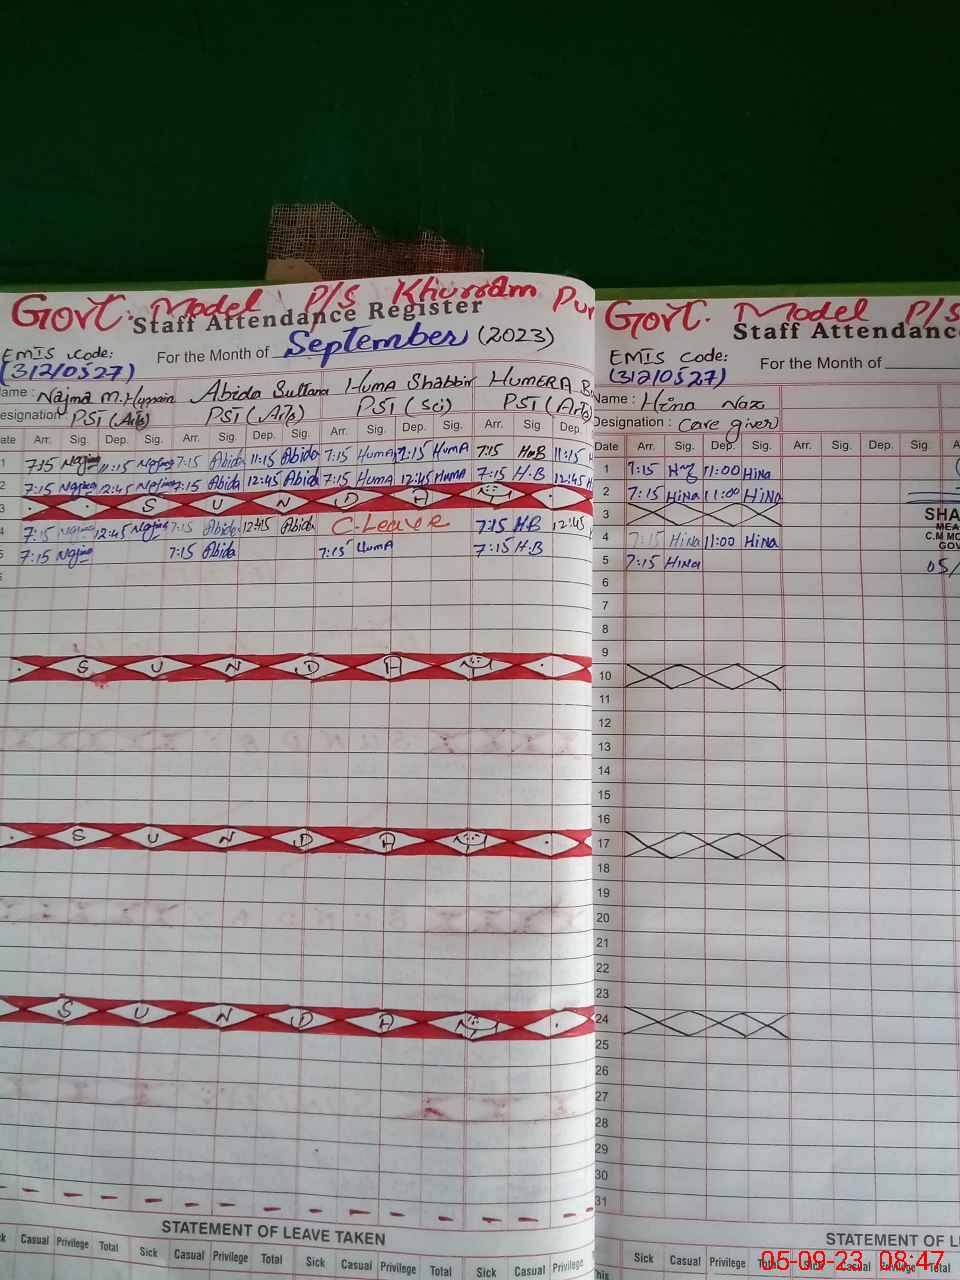 Govt. Model P/S Khurram Pur
Staff Attendance Register
EMIS Code:
(31210527)
For the Month of September (2023)
Name : Najma M. Hussain Abida Sultana Huma Shabbir HUMERA B
Designation : PST (Arts) PST (Arts) PST (Sci) PST (Arts)
Date Arr. Sig. Dep. Sig. Arr. Sig. Dep. Sig. Arr. Sig. Dep. Sig. Arr. Sig. Dep.
1 7:15 Najma 11:15 Najma 7:15 Abida 11:15 Abida 7:15 HumA 11:15 HumA 7:15 HuB 11:15
2 7:15 Najma 12:45 Najma 7:15 Abida 12:45 Abida 7:15 HumA 12:45 HumA 7:15 H.B 12:45
3 S U N D A Y
4 7:15 Najma 12:45 Najma 7:15 Abida 12:45 Abida C-Leave 7:15 HB 12:45
5 7:15 Najma 7:15 Abida 7:15 HumA 7:15 H.B
S U N D A Y
S U N D A Y
S U N D A Y
STATEMENT OF LEAVE TAKEN
Casual Privilege Total Sick Casual Privilege Total Sick Casual Privilege Total Sick Casual Privilege
Govt. Model P/S
Staff Attendance
EMIS Code:
(31210527)
For the Month of
Name : Hina Naz
Designation : Care giver
Date Arr. Sig. Dep. Sig. Arr. Sig. Dep. Sig.
1 7:15 11:00 Hina
2 7:15 Hina 11:00 Hina
3
4 7:15 Hina 11:00 Hina
5 7:15 Hina
6
7
8
9
10
11
12
13
14
15
16
17
18
19
20
21
22
23
24
25
26
27
28
29
30
31
SHA
MEA
C.M MO
GOV
05/
STATEMENT OF L
Sick Casual Privilege Total Sick Casual Privilege Total
05-09-23 08:47